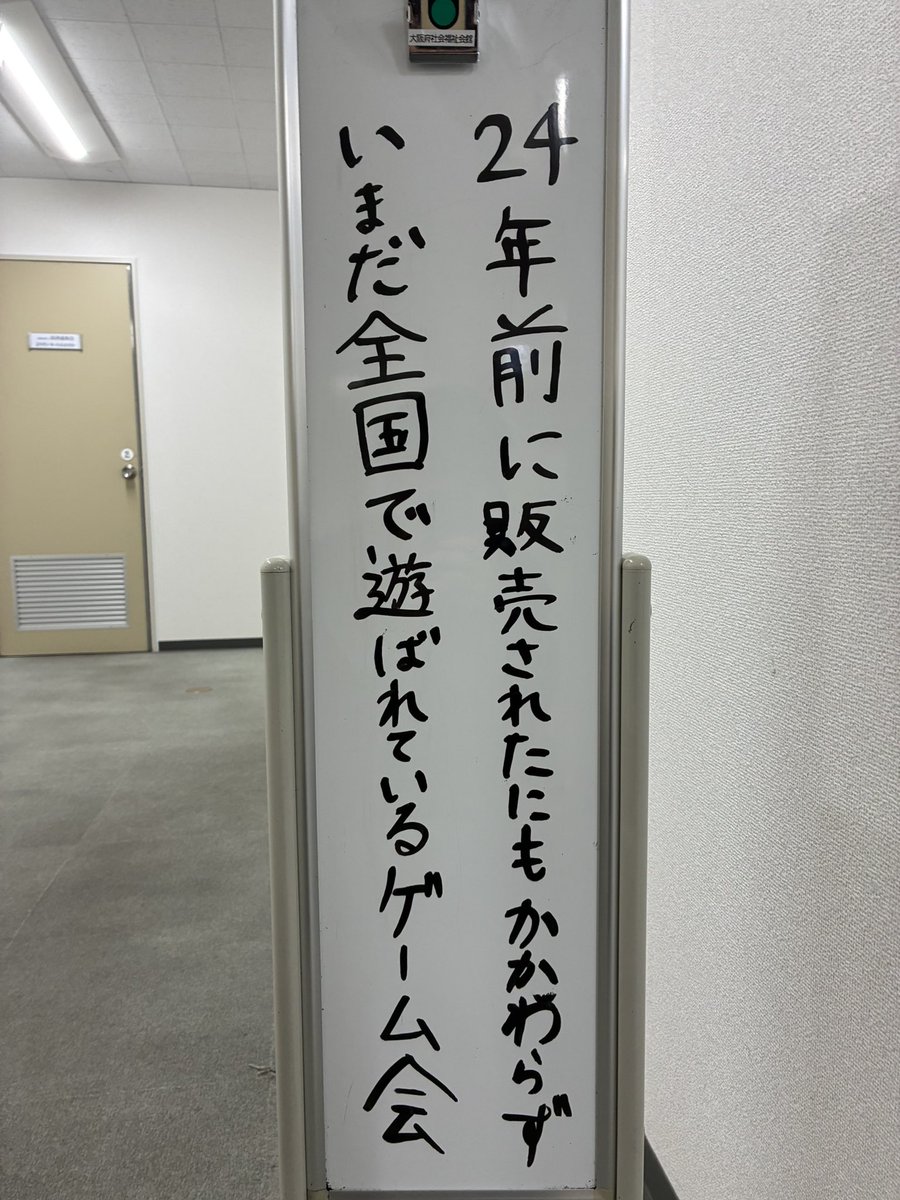 大阪府社会福祉会館
24年前に販売されたにもかかわらず
いまだ全国で遊ばれているゲーム会